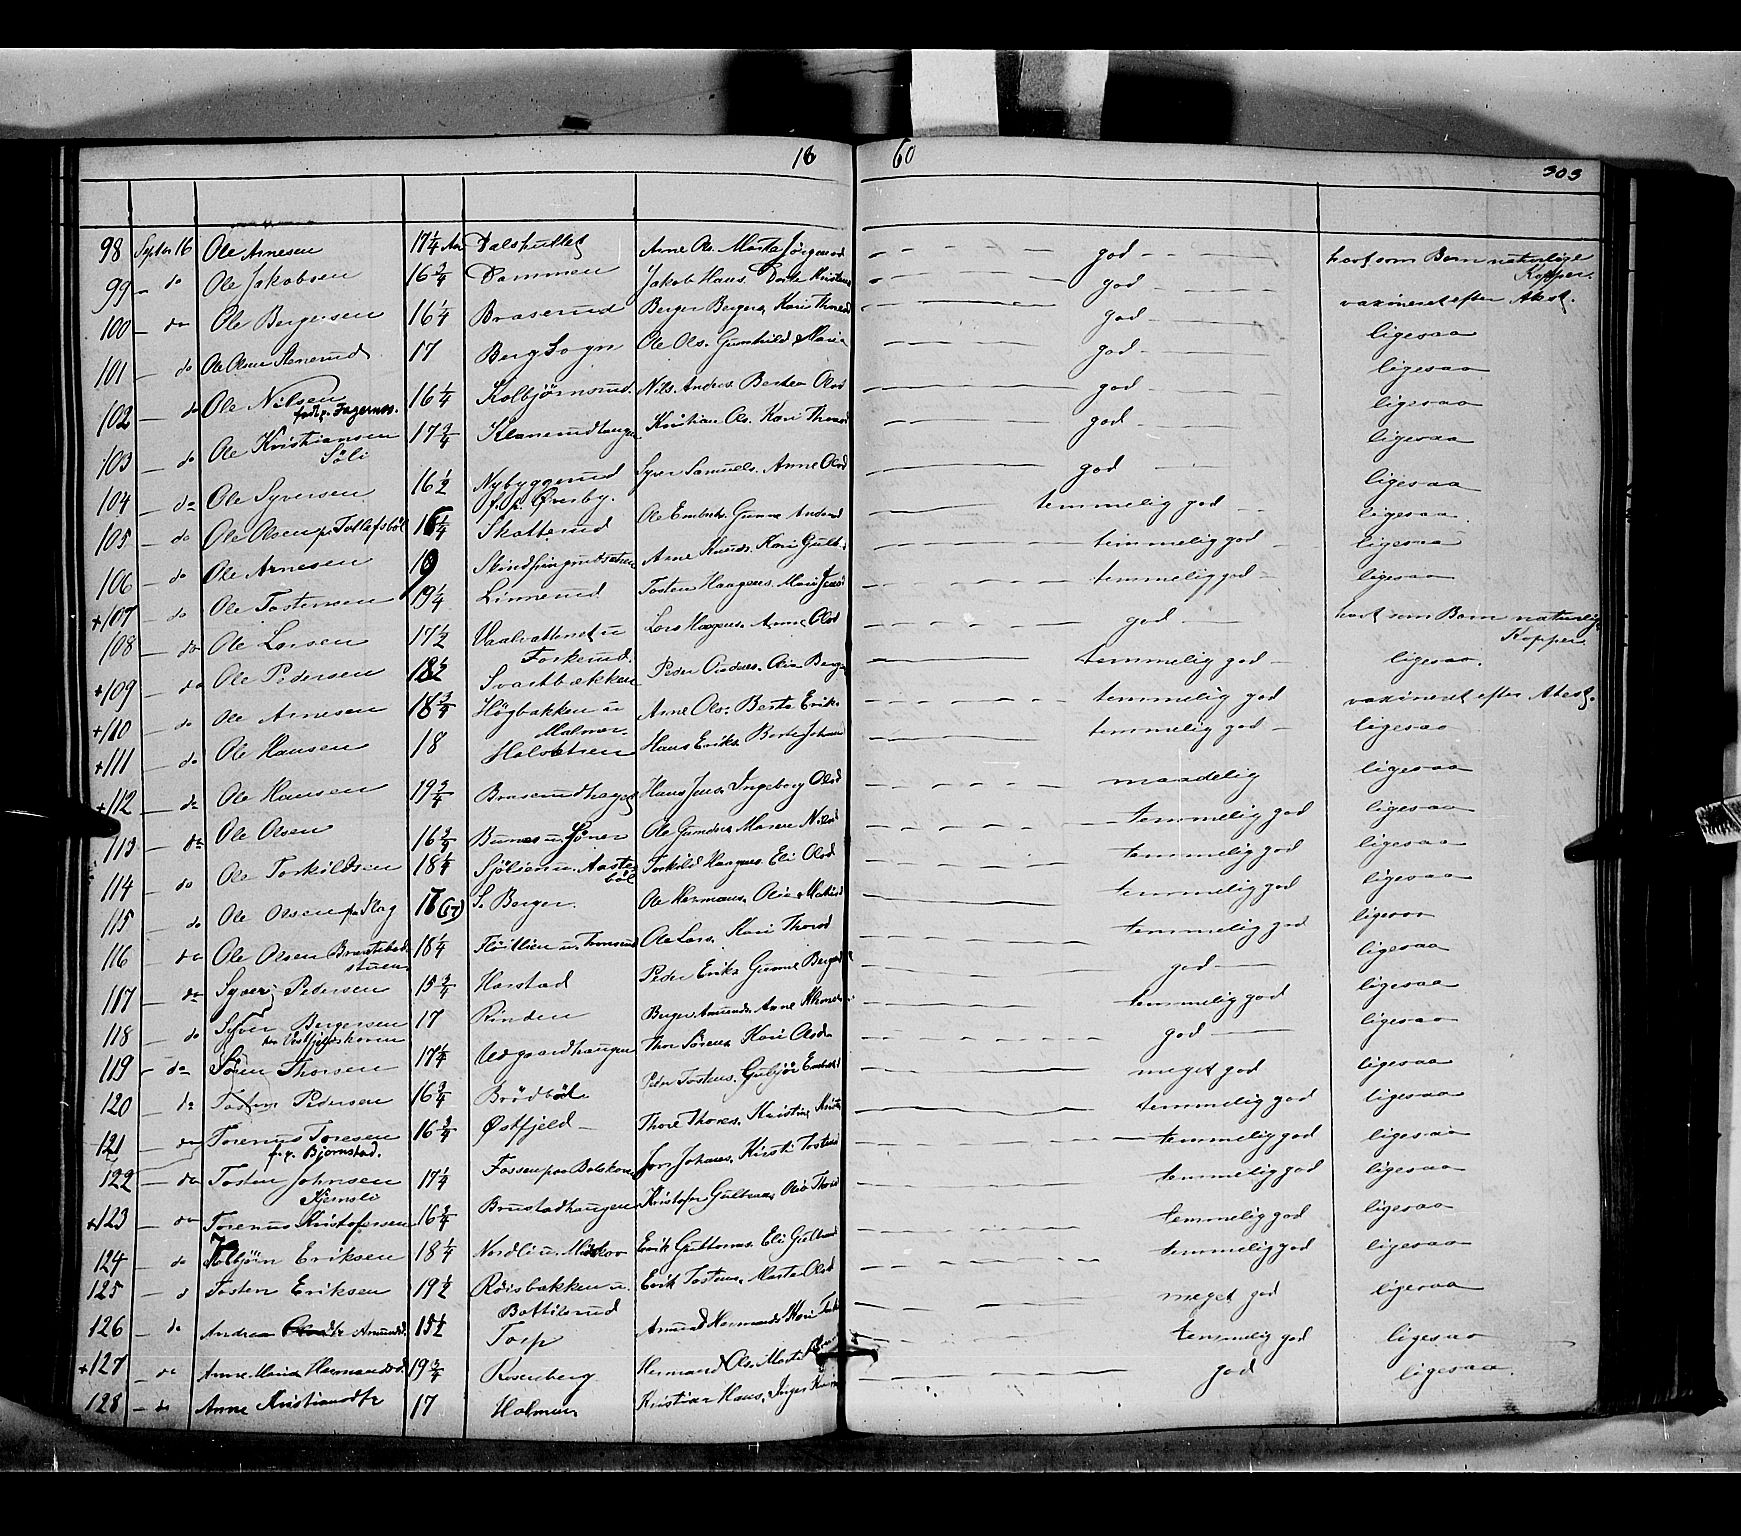 18 60
303
98 Septbr 16 Ole Arnesen 17 1/4 Aar Dalshullet Arne Ols. Marta Jörgensd god havt som Barn naturlige
Kopper.
99 - do Ole Jakobsen 16 3/4 Dammen Jakob Hans. Dorte Kristens god vaxineret efter Atest.
100 - do Ole Bergersen 16 1/4 Braserud Berger Bergers. Kari Thoresd god ligesaa
101 - do Ole Olsen Stenerud 17 Berg Sogn Ole Ols. Gunhild Maria god ligesaa
102 - do Ole Nilsen 16 1/4 Kolbjörnsrud Nils Anders. Berthea Olsd god ligesaa
födt p. Fagernes.
103 - do Ole Kristiansen 17 3/4 Klanerudhaugen Kristian Ols. Kari Thoresd god ligesaa
Söli
104 - do Ole Syversen 16 1/2 Nybyggerud Syver Samuels. Anne Olsd god ligesaa
f. p. Öveby.
105 - do Ole Olsen p. Tollefsböl 16 1/4 Skatterud Ole Embrets. Gunne Andersd temmelig god ligesaa
106 - do Ole Arnesen 19 Arne Knuds. Kari Gulb. temmelig god ligesaa
+107 - do Ole Tostensen 19 1/4 Linnerud Tosten Haagens. Mari Jensd temmelig god ligesaa
108 - do Ole Larsen 17 1/2 Vaalvattenet u Lars Haagens. Anne Olsd god havt som Barn naturlige
Forkerud. Kopper
+109 - do Ole Pedersen 18 1/2 Svartbækken Peder temmelig god ligesaa.
+110 - do Ole Arnesen 18 3/4 Högbakken u Arne Ols. Berte Eriks. temmelig god vaxineret efter Atest.
Malmer.
+111 - do Ole Hansen 18 Holvetsen Hans Eriks. Berte Johans temmelig god ligesaa
+112 - do Ole Hansen 19 3/4 Braserudhagen Hans Jens. Ingeborg Olsd maadelig ligesaa
113 - do Ole Olsen 16 3/4 Bunes u. Ole Gunders. Maren Nilsd temmelig god ligesaa
114 - do Ole Torkildsen 18 1/4 Sjölien u. Aaste- Torkild Haagens. Eli Olsd temmelig god ligesaa
böl
115 - do Ole Olsen fra Slag 17 (57) S. Berger. Ole Hermans. Olia Mathisd temmelig god ligesaa
116 - do Ole Olsen Branstebed- 18 1/4 Flöitlien u. Tronsrud Ole Lars. Kari Thorsd temmelig god ligesaa
stuen
117 - do Syver Pedersen 15 3/4 Harstad Peder Eriks. Gunne Bergersd god ligesaa
118 - do Syver Bergersen 17 Rinden Berger Amunds. Anne temmelig god ligesaa
119 - do Sören Thorsen 17 1/4 Udgaardhaugen Thor Sörens. Kari Olsd. god ligesaa
120 - do Tosten Pedersen 16 3/4 Brödböl Peder Tostens. Gubjör Embretsd meget god ligesaa
121 - do Torenus Toresen 16 3/4 Østfjeld Thore Thores. Kristine temmelig god ligesaa
f. p. Bjornstad.
122 - do Tosten Johnsen 17 1/4 Fossen paa Bolskoven Jon Johanes. Kirsti Tostensd temmelig god ligesaa
Kjensli
+123 - do Torenus Kristofersen 16 3/4 Brustadhaugen Kristofer Gulbrans. Olia Thorsd temmelig god ligesaa
124 - do Torbjörn Eriksen 18 1/4 Nordli u. Möskov Erik Guttorms. Eli Gulbransd temmelig god ligesaa
125 - d Tosten Eriksen 19 1/2 Röisbakken u. Erik Tostens. Marta Olsd temmelig god ligesaa
Bottilsrud
126 - do Andrea Amundsd. 15 1/2 Torp Amund Hermands. Kari meget god ligesaa
+127 - do Anne Maria Hermandsd. 19 3/4 Rosenberg Hermand Ols. Marte temmelig god ligesaa
128 - do Anne Kristiansdtr 17 Holmen Kristian Hans. Inger god ligesaa